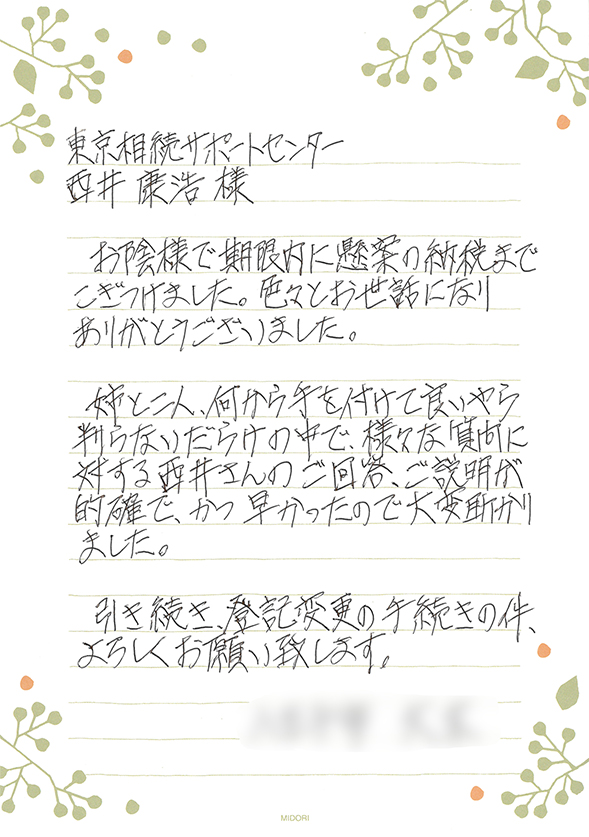 東京相続サポートセンター
酉井 康浩 様
お陰様で期限内に懸案の納税まで
こぎつけました。色々とお世話になり
ありがとうございました。
姉と二人、何から手を付けて良いやら
判らないだらけの中で、様々な質問に
対する酉井さんのご回答、ご説明が
的確で、かつ早かったので大変助かり
ました。
引き続き、登記変更の手続きの件、
よろしくお願い致します。
MIDORI